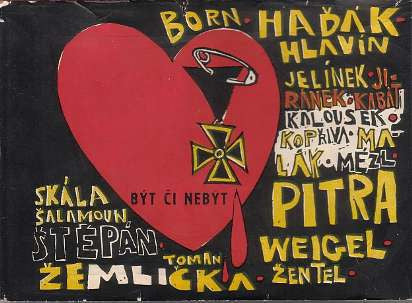 BORN · HAĎÁK ·
HLAVÍN
JELÍNEK · JI-
RÁNEK · KABÁT
KALOUSEK ·
KOPŘIVA · MA-
LÁK · MĚZL ·
PITRA
WEIGEL ·
ŽENTEL ·
BÝT ČI NEBÝT
SKÁLA
ŠALAMOUN
ŠTĚPÁN ·
TOMAN ·
ŽEMLIČKA ·